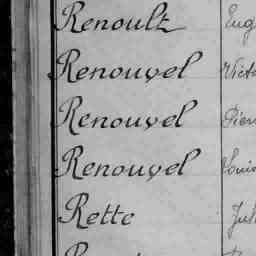 Renoult Eug
Renouvel Victo
Renouvel Pier
Renouvel Louis
Rette Jul